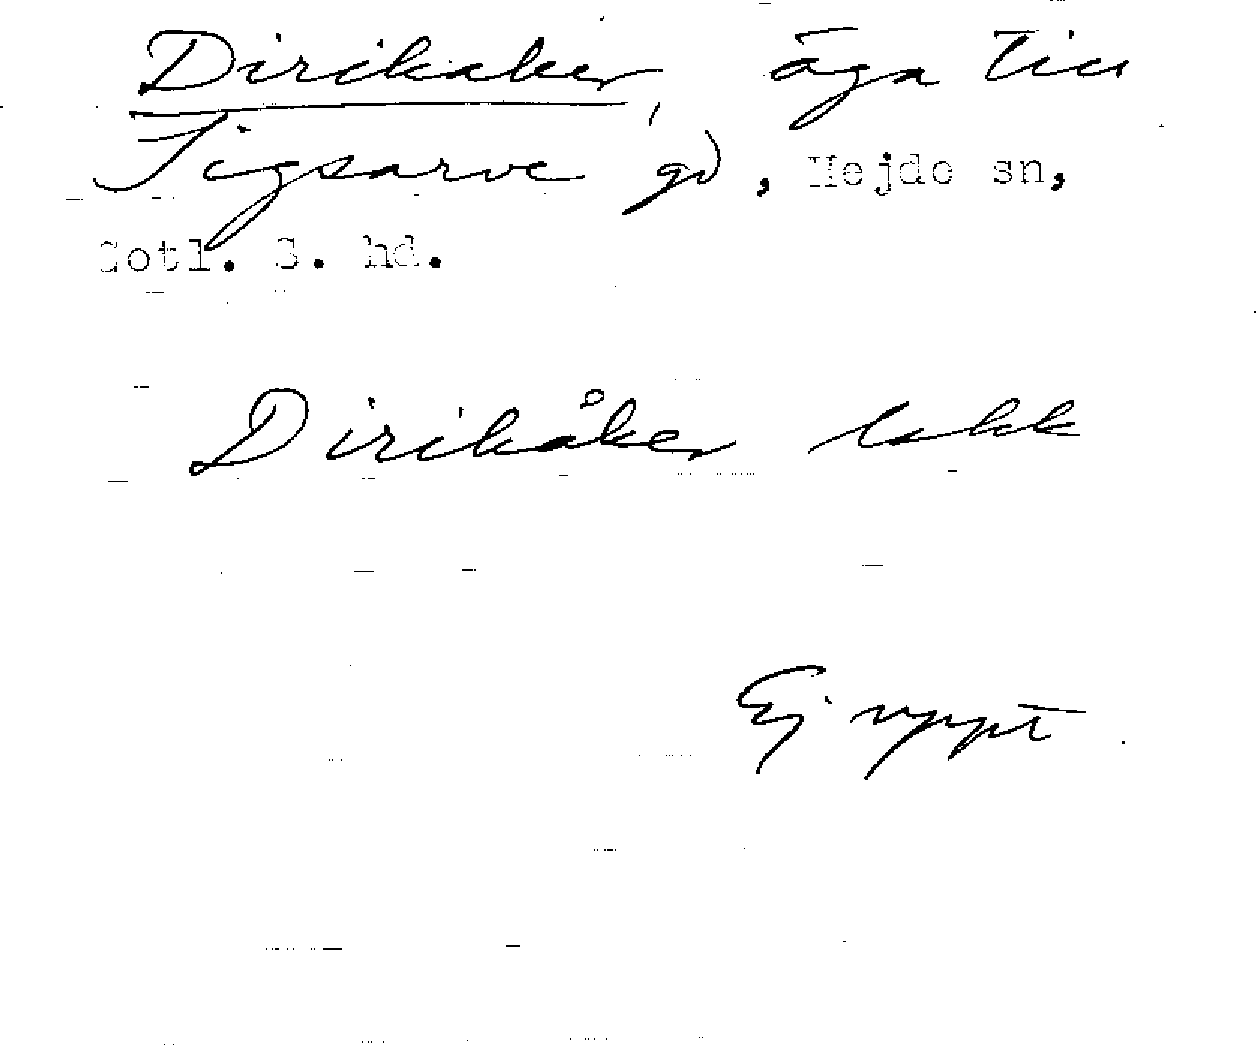 Dirikaker, äga till
Sigsarve gd, Hejde sn,
Gotl. S. hd.
Dirikåker lakk
Ej uppt.